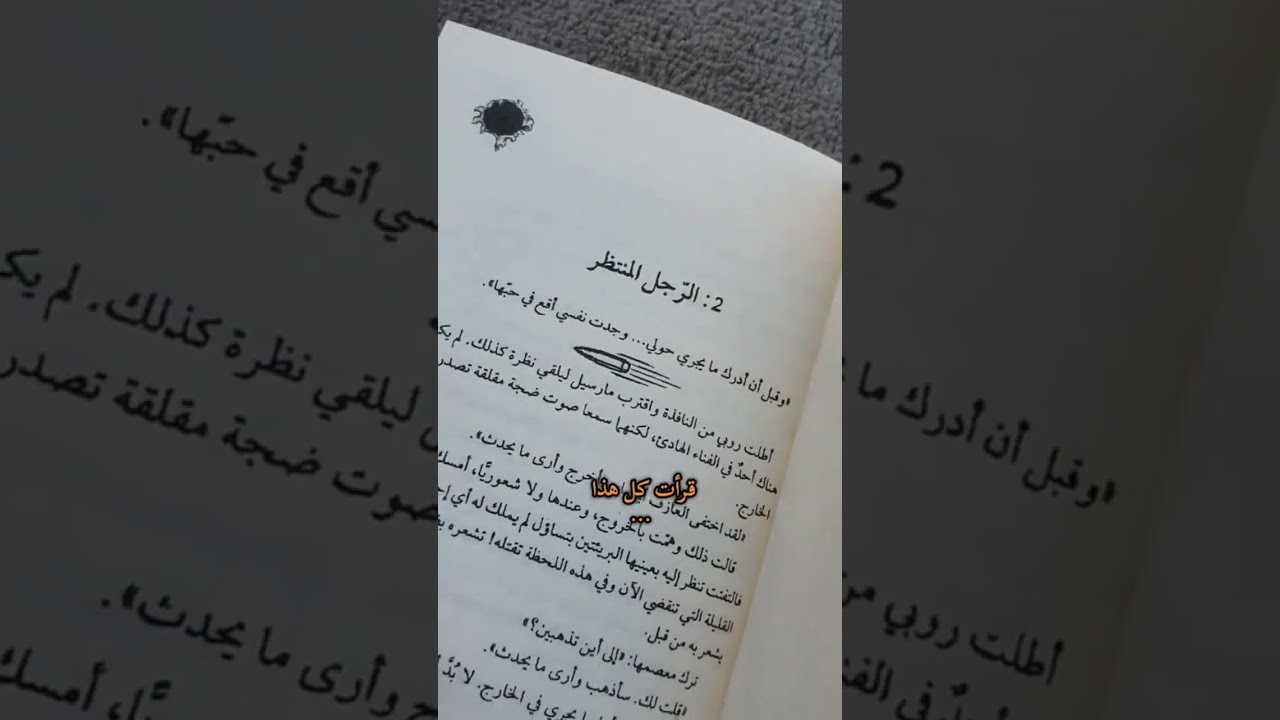 2: الرّجل المنتظر
«وقبل أن أدرك ما يجري حولي... وجدت نفسي أقع في حبّها».
أطلت روبي من النافذة واقترب مارسيل ليلقي نظرة كذلك. لم يك
هناك أحدٌ في الفناء الهادئ، لكنهما سمعا صوت ضجة مقلقة تصدر
الخارج.
«لقد اختفى العازف وأخرج وأرى ما يحدث».
قالت ذلك وهمّت بالخروج، وعندها ولا شعوريًّا، أمسك
فالتفتت تنظر إليه بعينيها البريئتين بتساؤل لم يملك له أي
القليلة التي تنقضي الآن وفي هذه اللحظة تقتله! تشعره
يشعر به من قبل.
ترك معصمها: «إلى أين تذهبين؟»
«قلت لك. سأذهب وأرى ما يحدث».
ما يجري في الخارج. لا بُدَّ
قرأت كل هذا
...